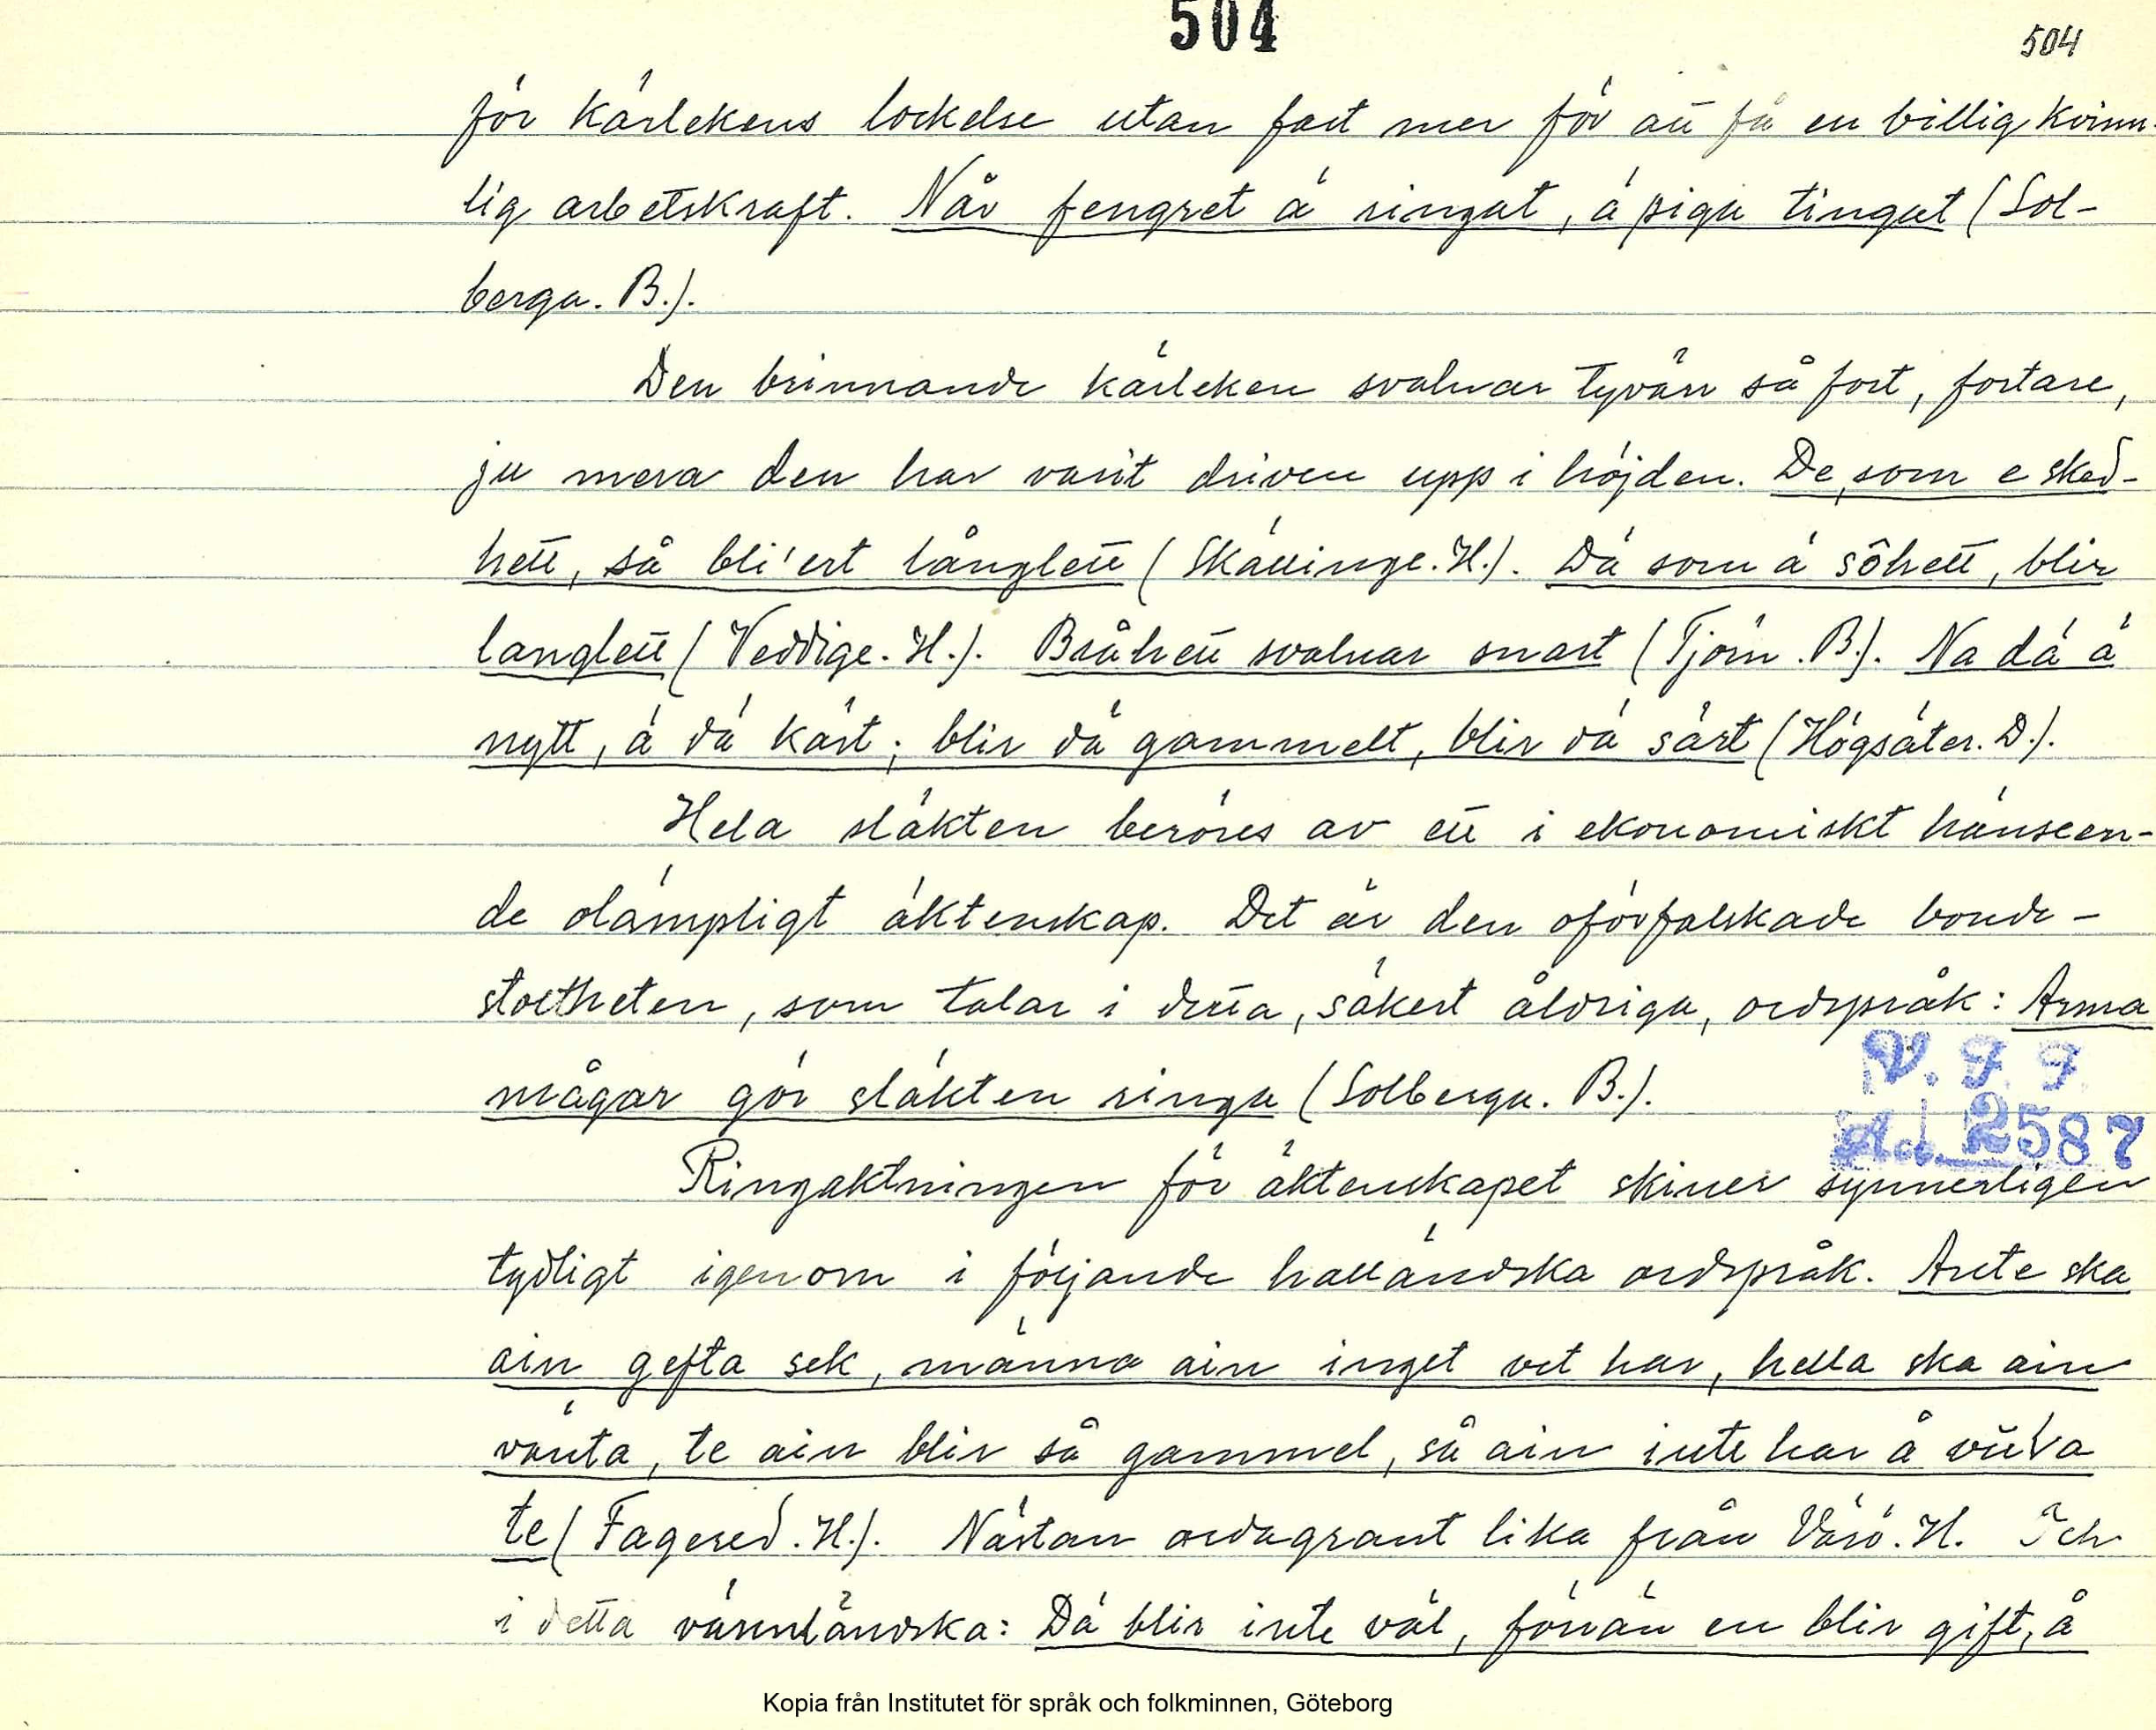 504
504
för kärlekens lockelse utan fast mer för att få en billig kvinn-
lig arbetskraft. Når fengret ä ringat, ä piga tingat (Sol-
berga. B.).
Den brinnande kärleken svalnar tyvärr så fort, fortare,
ju mera den har varit driven upp i höjden. De, som e sked-
hett, så bli'ert långlett (Skällinge. H.). Dä som ä sôhett, blir
langlett (Veddige. H.). Bråhett svalnar snart (Tjörn. B.). Na dä ä
nytt, ä dä kärt; blir dä gammelt, blir dä sårt (Högsäter. D.).
Hela släkten beröres av ett i ekonomiskt hänseen-
de olämpligt äktenskap. Det är den oförfalskade bonde-
stoltheten, som talar i detta, säkert åldriga, ordspråk: Arma
mågar gör släkten ringa (Solberga. B.).
V. F. F.
Acc. 2587
Ringaktningen för äktenskapet skiner synnerligen
tydligt igenom i följande halländska ordspråk. Ante ska
ain gefta sek, männa ain inget vet har, hella ska ain
vänta, te ain blir så gammel, så ain inte har å
te (Fagered. H.). Nästan ordagrant lika från Värö. H. Och
i detta värmländska: Dä blir inte väl, förrän en blir gift, å
Kopia från Institutet för språk och folkminnen, Göteborg